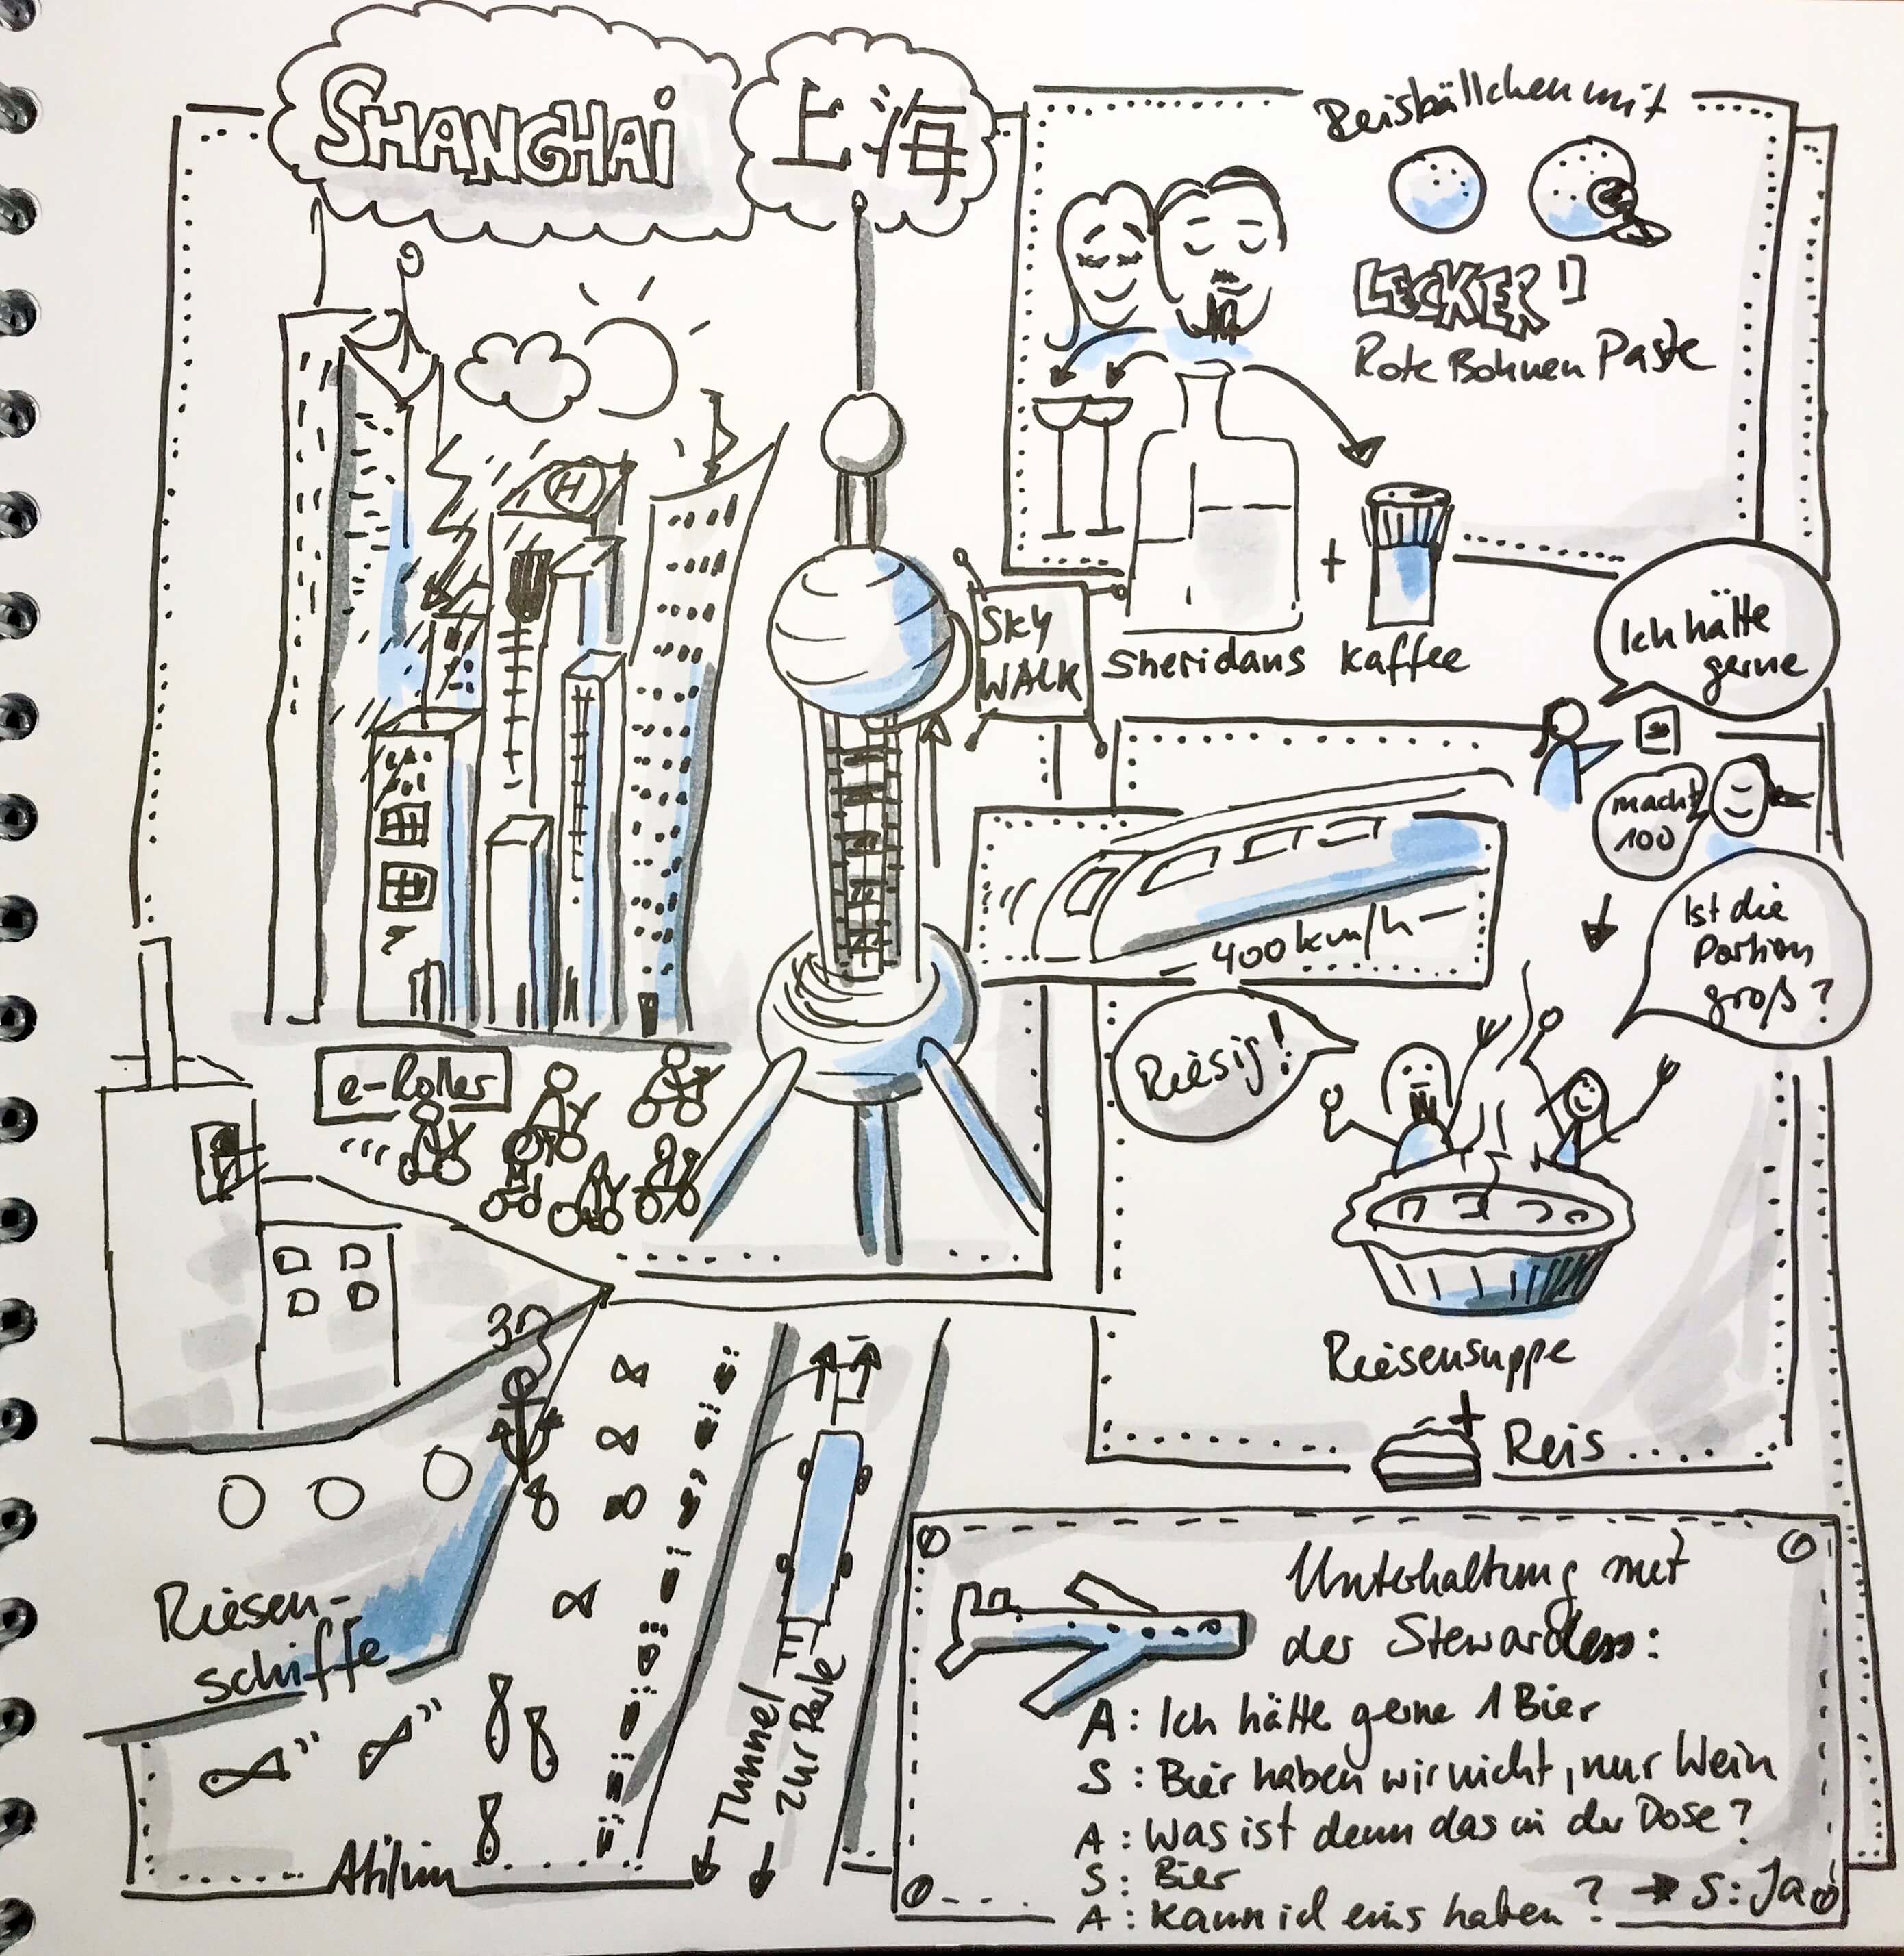 SHANGHAi
上海
Reisbällchen mit
LECKER!!
Rote Bohnen Paste
SKY
WALK
Sheridans + Kaffee
Ich hätte
gerne
macht
100
400 km/h
Ist die
Portion
groß?
Riesig!
Riesensuppe
+
Reis
H
e-Roller
Riesen-
schiffe
Tunnel
zur Perle
Unterhaltung mit
der Stewardess:
A: Ich hätte gerne 1 Bier
S: Bier haben wir nicht, nur Wein
A: Was ist denn das in der Dose?
S: Bier
A: Kann ich eins haben? → S: Ja